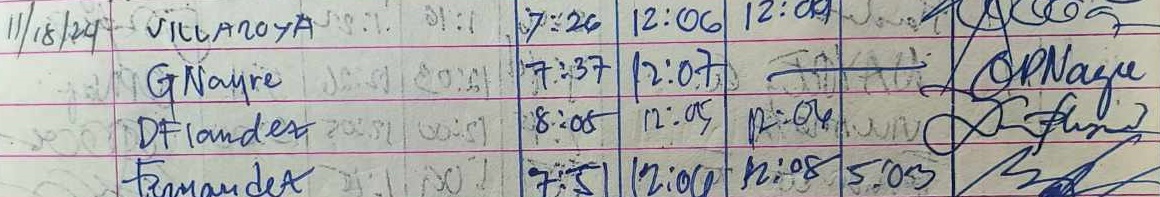 11/18/24 VILLAROYA 7:26 12:06 12:09
GNayre 7:37 12:07 OPNayre
DFlandez 8:05 12:05 12:06
Fernandez 7:51 12:00 12:08 5:03